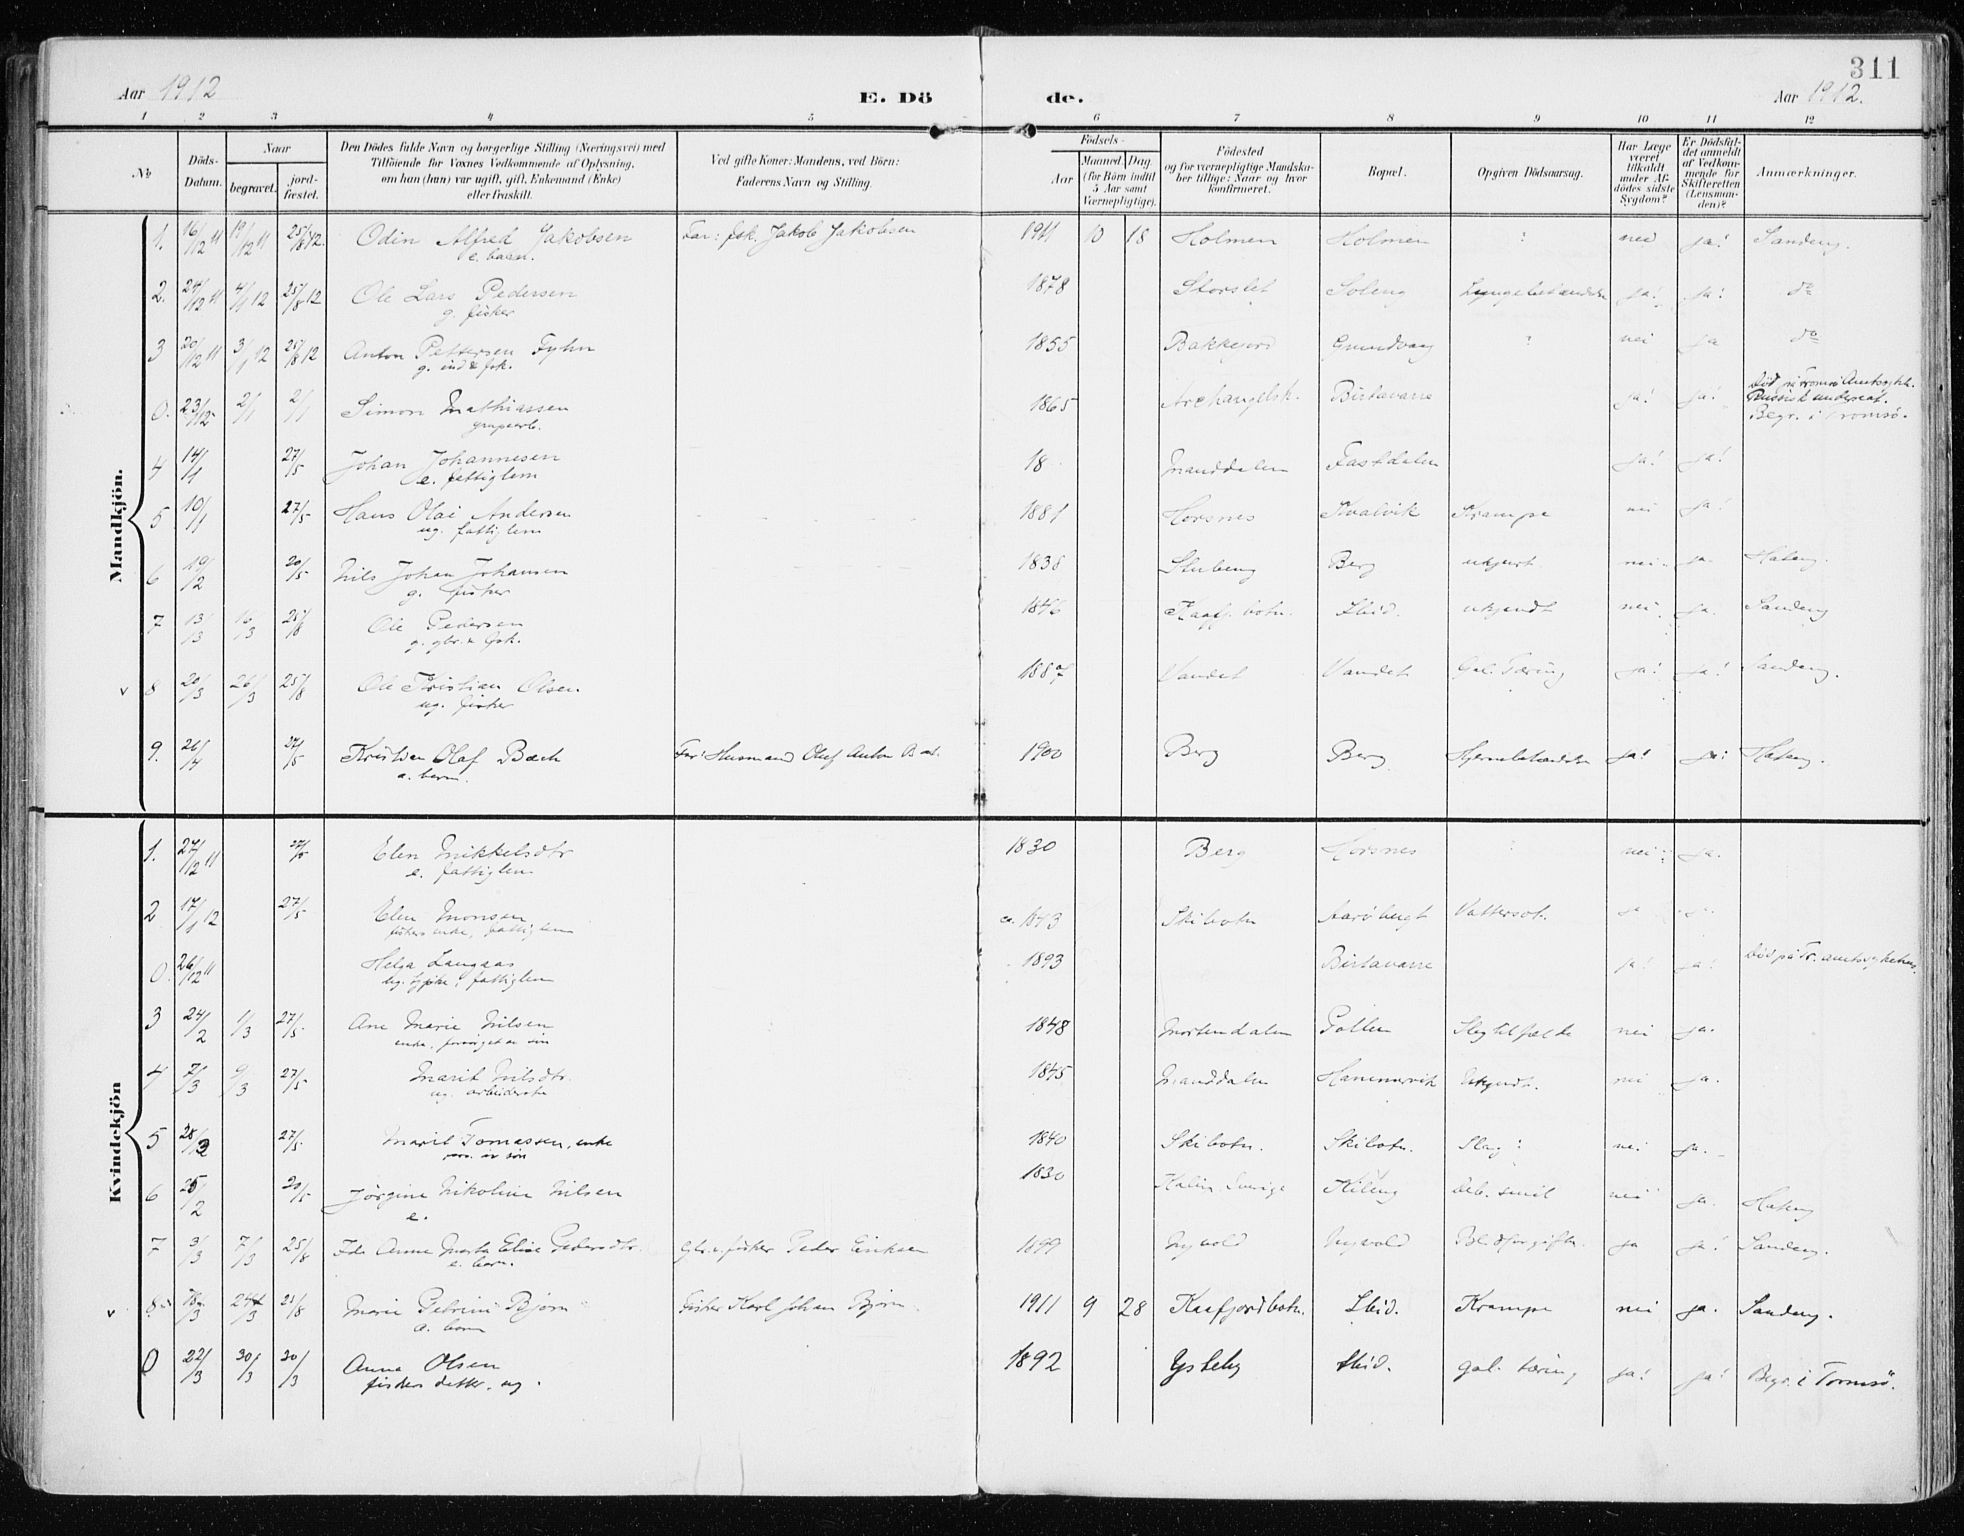 311
Aar 1912
E. Dö de.
Aar 1912.
1 2 3 4 5 6 7 8 9 10 11 12
№
Döds-Datum.
Naar
begravet.
jordfæstet.
Den Dödes fulde Navn og borgerlige Stilling (Næringsvei) med
Tilföiende for Voxnes Vedkommende af Oplysning,
om han (hun) var ugift, gift, Enkemand (Enke)
eller fraskilt.
Ved gifte Koner: Mandens, ved Börn:
Faderens Navn og Stilling.
Födsels-
Aar
Maaned. Dag.
(for Börn indtil
5 Aar samt
Værnepligtige).
Födested
og for værnepligtige Mandska-
ber tillige: Naar og hvor
konfirmeret.
Bopæl.
Opgiven Dödsaarsag.
Har Læge
været
tilkaldt
under Af-
dödes sidste
Sygdom?
Er Dödsfal-
det anmeldt
af Vedkom-
mende for
Skifteretten
(Lensman-
den)?
Anmærkninger.
Mandkjön.
1. 16/12 11 19/12 11 25/8 12. Odin Alfred Jakobsen Far: fsk. Jakob Jakobsen 1911 10 18 Holmen Holmen ? nei ja! Sandeng.
e. barn.
2. 24/12 11 4/1 12 25/8 12 Ole Lars Pedersen 1878 Storslet Soleng Lungebetændelse ja! ja! do
g. fisker
3 20/12 11 3/1 12 25/8 12 Anton Pettersen Fyhn 1855 Bakkejord Grundvaag ? nei ja do
g. fsk.
0. 23/12 2/1 2/1 Simon Mathiassen 1865 Archangelsk. Birtavarre ja! ja! Död på Tromsö Amtssykh.
Russisk undersat.
grupearb. Begr. i Tromsö.
4 14/1 27/5 Johan Johannesen 18 Manddalen Fastdalen ja! ja!
e. fattiglem
5 10/1 27/5 Hans Olai Andersen 1881 Horsnes Kvalvik Krampe nei ja!
ug. fattiglem
6 19/2 20/5 Nils Johan Johansen 1838 Berg nei. ja. Hateng.
g. fisker
7 13/3 16/3 25/8 Ole Pedersen 1846 Kaafj. botn. Skid. ukjendt nei. ja. Sandeng
g. gbr. & fsk.
v 8 20/3 26/3 25/8 Ole Kristian Olsen 1887 Vandet Vandet Gal. Tæring ja! ja! Sandeng.
ug. fisker
9. 26/4 27/5 Kristian Olaf Bæch Far: Husmand Oluf Anton 1900 Berg Berg Hjernebetændelse ja! ja! Hateng.
e. barn.
Kvindekjön
1. 27/12 11 27/5 Elen Mikkelsdtr 1830 Berg Horsnes ? nei ja.
e. fattiglem
2 17/1 12 27/5 Elen Monsen ca. 1843 Skibotn Aaröbergt Vattersot. ja ja.
fiskers enke, fattiglem
0. 26/12 11 Helga Langaas 1893 Birtavarre ja! ja! Död på Tr. amtssykehus.
ug. fattiglem
3 24/2 1/3 27/5 Ane Marie Nilsen 1848 Mortendalen Pollen Slagtilfælde nei ja.
enke, forsörget av sön
4 7/3 9/3 27/5 Marit Nilsdtr. 1845 Manddalen Hammervik Ukjendt. nei ja.
ug. arbeiderske
5 28/2 27/5 Marit Tomassen, enke 1840 Skibotn. Skibotn. Slag? nei ja.
fors. av sön
6 25/2 20/5 Jörgine Nikoline Nilsen 1830 Kalix, Sverige Kileng nei ja. Hateng
e.
7 3/3 7/3 25/8 Ida Anna Marta Elise Pedersdtr. Gbr. & fisker Peder Eriksen 1899 Nyvold Nyvold Blodforgiftn. ja ja! Sandeng.
e. barn.
v 8. 18/3 24/3 21/8 Marie Petrine Björn Fisker Karl Johan Björn 1911 9 28 Kaafjordbotn. Skid. Krampe nei ja. Sandeng.
e. barn
0 22/3 30/3 30/3 Anna Olsen 1892 Ysteby Skid. gal. tæring ja! ja! Begr. i Tromsö.
fiskers datter, ug.